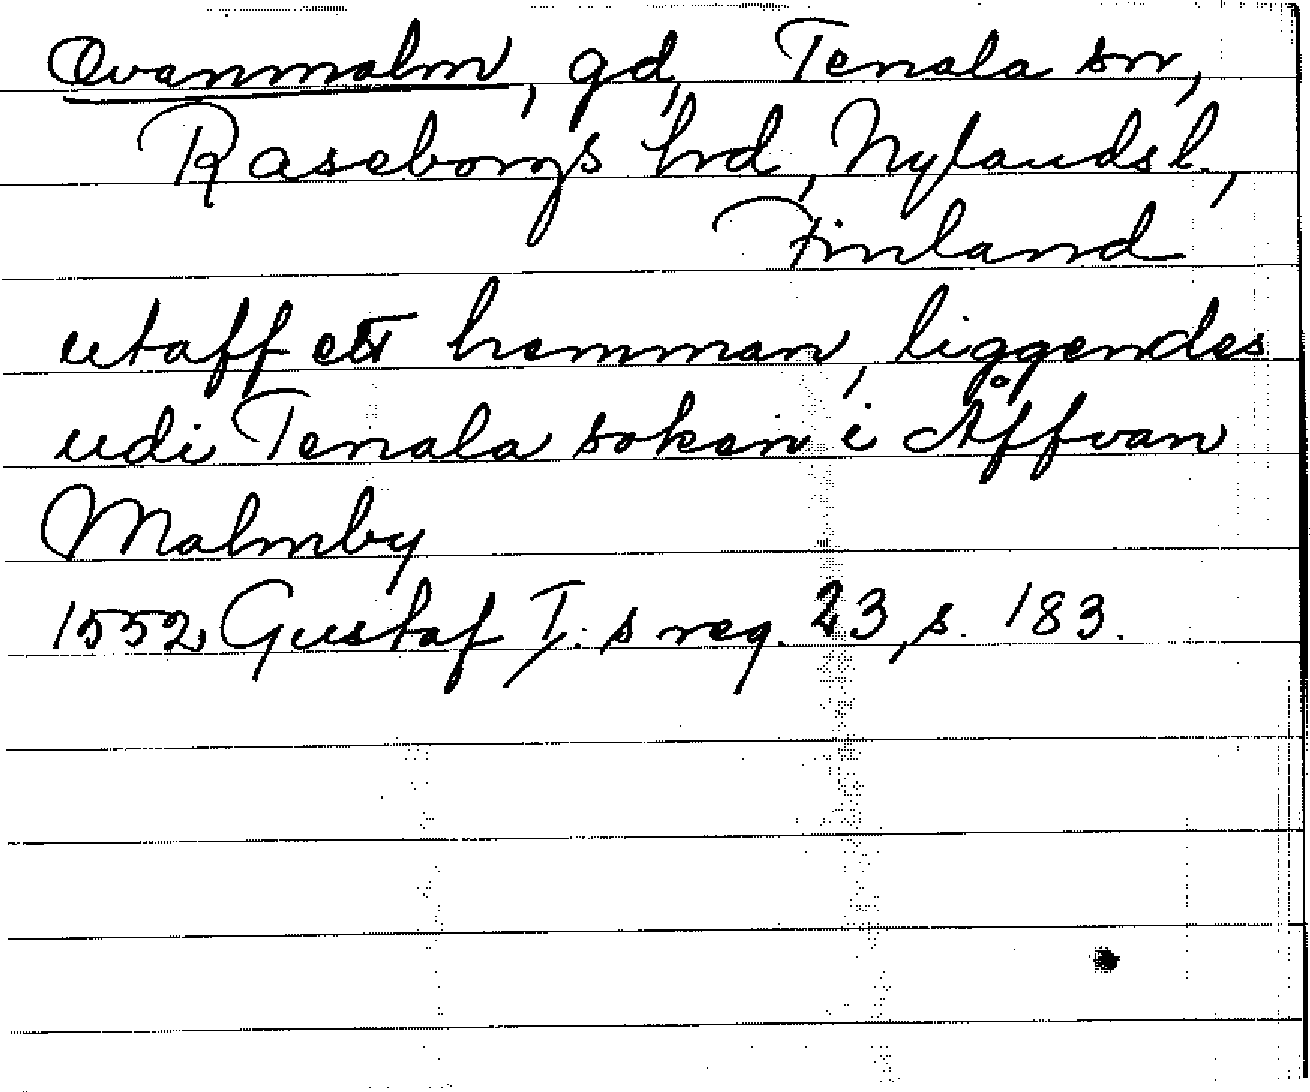 Ovanmalm, gd, Tenala sn,
Raseborgs hrd, Nylands l.,
Finland
utaff ett hemman, liggendes
udi Tenala soken i Åffvan
Malmby
1552 Gustaf I:s reg. 23, s. 183.